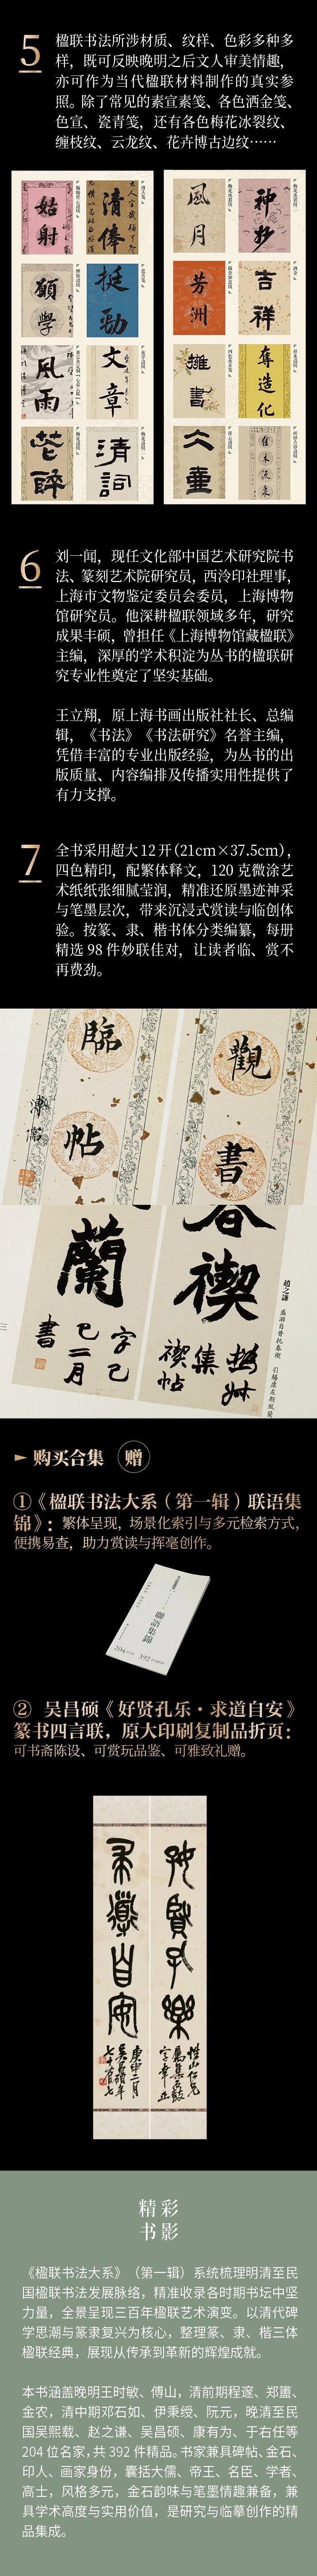 5
楹联书法所涉材质、纹样、色彩多种多
样，既可反映晚明之后文人审美情趣，
亦可作为当代楹联材料制作的真实参
照。除了常见的素宣素笺、各色洒金笺、
色宣、瓷青笺，还有各色梅花冰裂纹、
缠枝纹、云龙纹、花卉博古边纹……
姑射
清俸
愿学
挺劲
风雨
文章
清词
风月
神妙
芳洲
吉祥
拥书
夺造化
大童
6
刘一闻，现任文化部中国艺术研究院书
法、篆刻艺术院研究员，西泠印社理事，
上海市文物鉴定委员会委员，上海博物
馆研究员。他深耕楹联领域多年，研究
成果丰硕，曾担任《上海博物馆藏楹联》
主编，深厚的学术积淀为丛书的楹联研
究专业性奠定了坚实基础。
王立翔，原上海书画出版社社长、总编
辑，《书法》《书法研究》名誉主编，
凭借丰富的专业出版经验，为丛书的出
版质量、内容编排及传播实用性提供了
有力支撑。
7
全书采用超大12开(21cm×37.5cm)，
四色精印，配繁体释文，120克微涂艺
术纸纸张细腻莹润，精准还原墨迹神采
与笔墨层次，带来沉浸式赏读与临创体
验。按篆、隶、楷书体分类编纂，每册
精选98件妙联佳对，让读者临、赏不
再费劲。
臨帖
觀書
溥儒
蘭
書
春禊
三
趙之謙
► 购买合集 赠
①《楹联书法大系（第一辑）联语集
锦》：繁体呈现，场景化索引与多元检索方式，
便携易查，助力赏读与挥毫创作。
204
392
② 吴昌硕《好贤孔乐·求道自安》
篆书四言联，原大印刷复制品折页：
可书斋陈设、可赏玩品鉴、可雅致礼赠。
好賢孔樂
求導自安
精彩
书影
《楹联书法大系》（第一辑）系统梳理明清至民
国楹联书法发展脉络，精准收录各时期书坛中坚
力量，全景呈现三百年楹联艺术演变。以清代碑
学思潮与篆隶复兴为核心，整理篆、隶、楷三体
楹联经典，展现从传承到革新的辉煌成就。
本书涵盖晚明王时敏、傅山，清前期程邃、郑簠、
金农，清中期邓石如、伊秉绶、阮元，晚清至民
国吴熙载、赵之谦、吴昌硕、康有为、于右任等
204位名家，共392件精品。书家兼具碑帖、金石、
印人、画家身份，囊括大儒、帝王、名臣、学者、
高士，风格多元，金石韵味与笔墨情趣兼备，兼
具学术高度与实用价值，是研究与临摹创作的精
品集成。